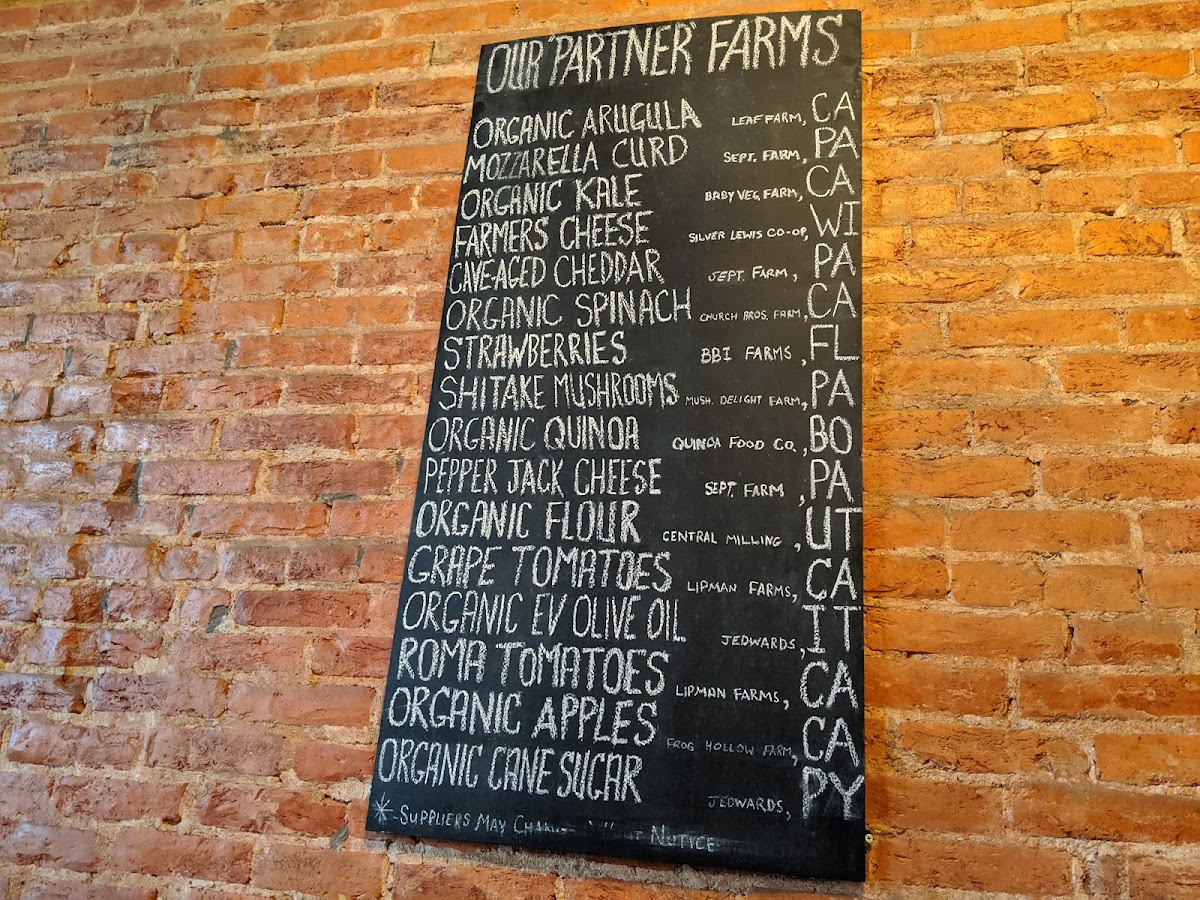 OUR 'PARTNER' FARMS
ORGANIC ARUGULA LEAF FARM, CA
MOZZARELLA CURD SEPT. FARM, PA
ORGANIC KALE BABY VEG. FARM, CA
FARMERS CHEESE SILVER LEWIS CO-OP, WI
CAVE-AGED CHEDDAR SEPT. FARM, PA
ORGANIC SPINACH CHURCH BROS. FARM, CA
STRAWBERRIES BBI FARMS, FL
SHITAKE MUSHROOMS MUSH. DELIGHT FARM, PA
ORGANIC QUINOA QUINOA FOOD CO., BO
PEPPER JACK CHEESE SEPT. FARM, PA
ORGANIC FLOUR CENTRAL MILLING, UT
GRAPE TOMATOES LIPMAN FARMS, CA
ORGANIC EV OLIVE OIL JEDWARDS, IT
ROMA TOMATOES LIPMAN FARMS, CA
ORGANIC APPLES FROG HOLLOW FARM, CA
ORGANIC CANE SUGAR JEDWARDS, PY
* - SUPPLIERS MAY NOTICE